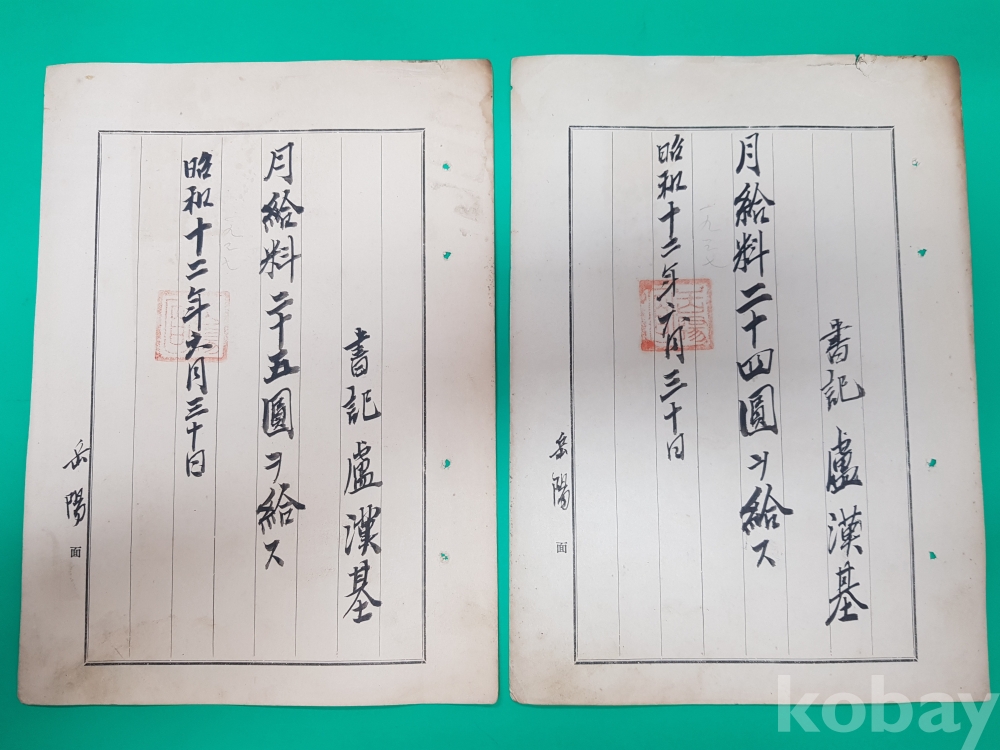 書記 盧漢基
月給料二十四圓ヲ給ス
一九三七
昭和十二年六月三十日
岳陽面
書記盧漢基
月給料二十五圓ヲ給ス
昭和十二年六月三十日
岳陽面
kobay